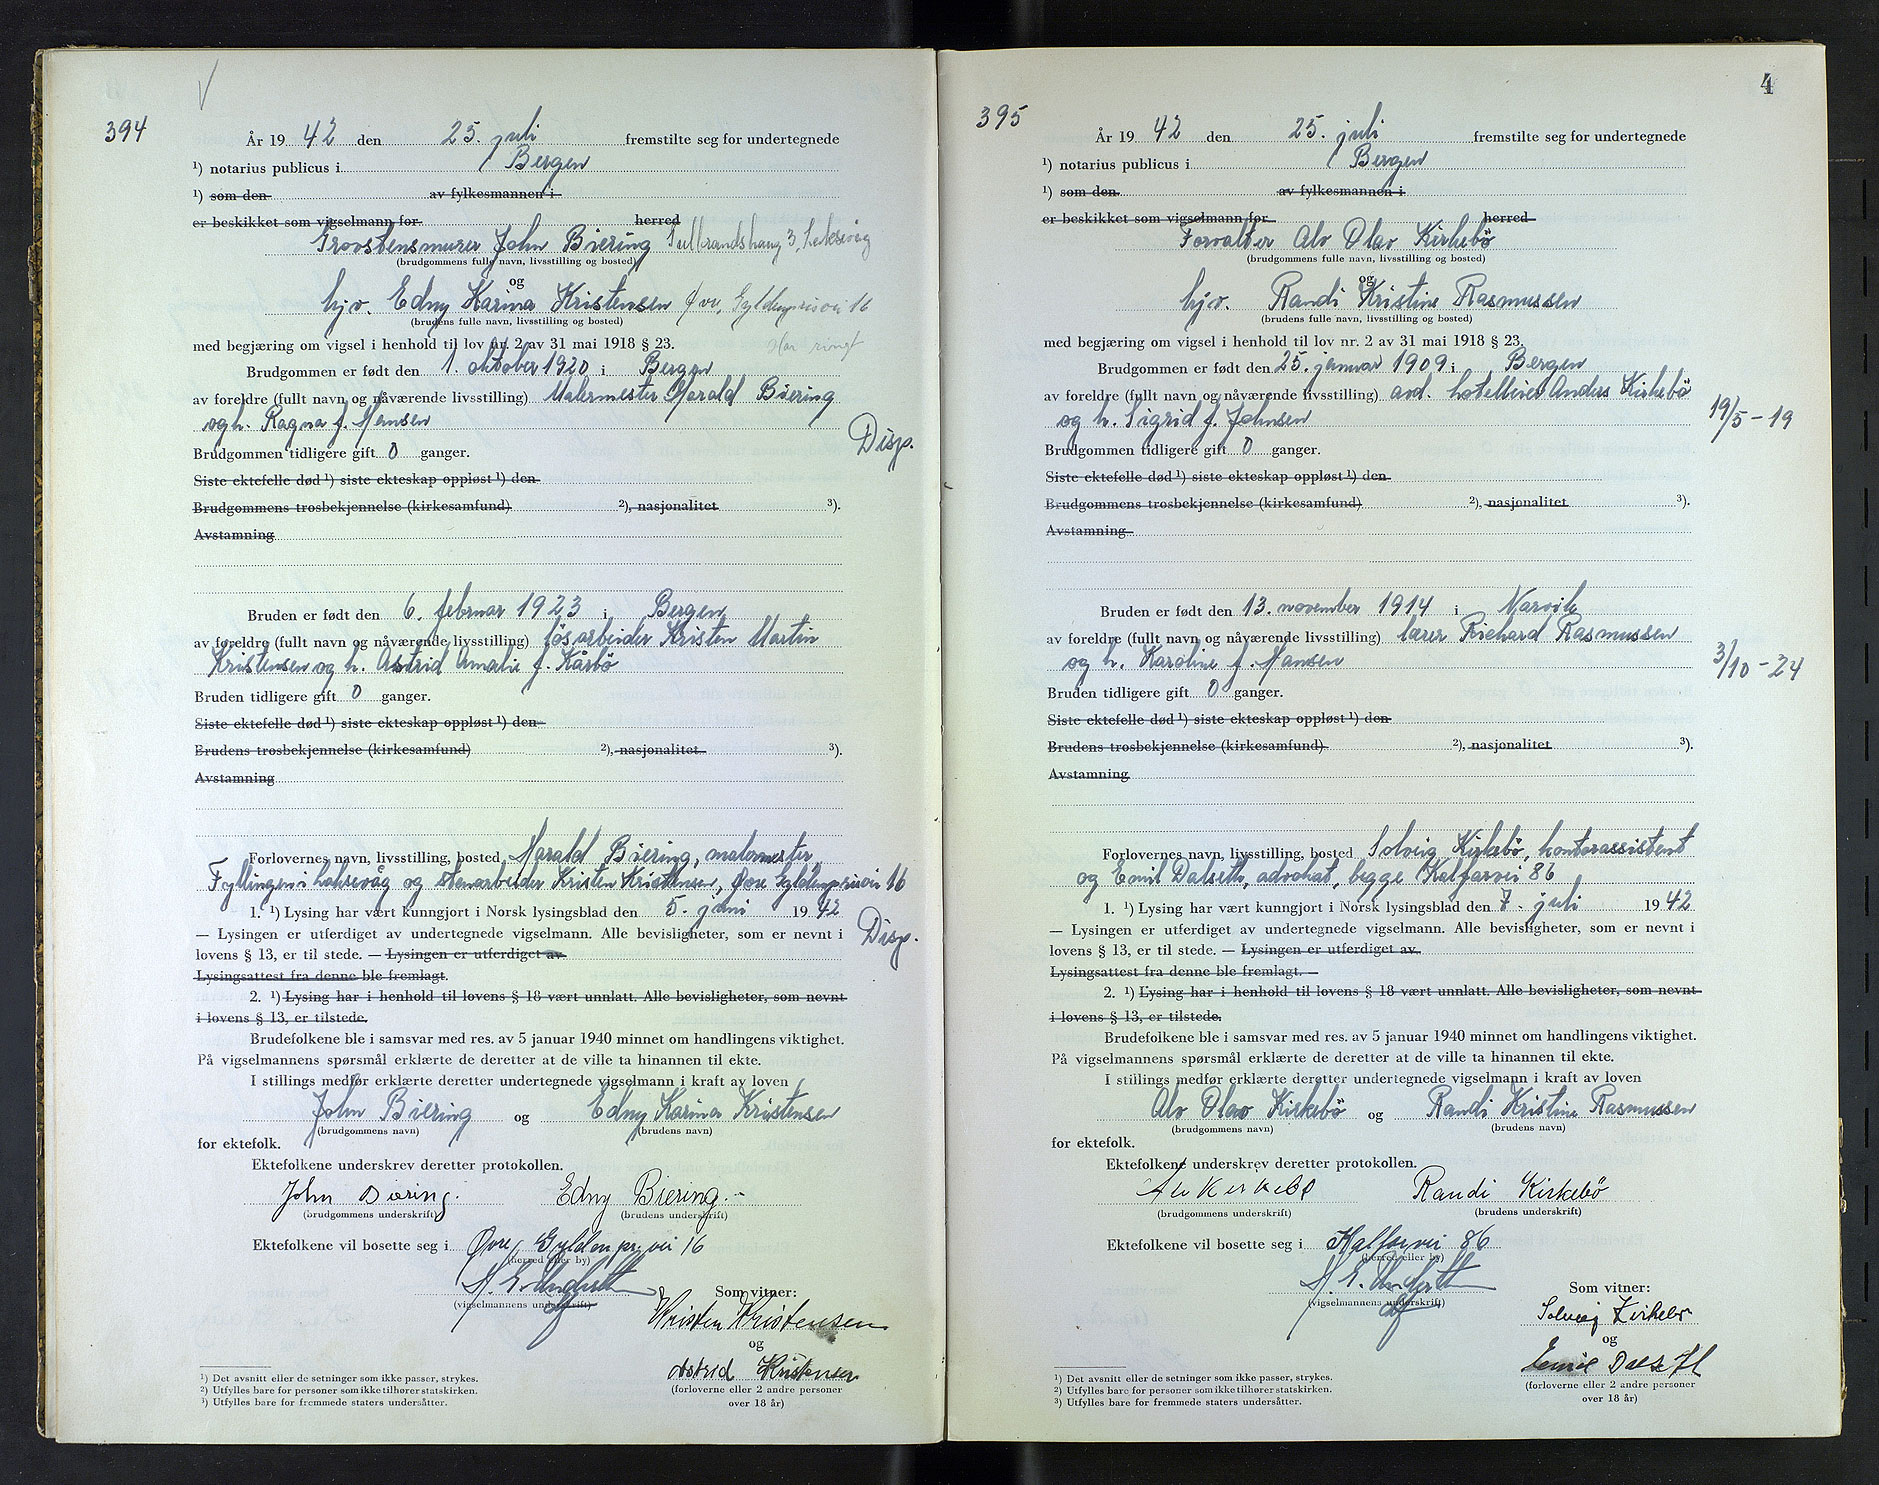 394
År 19 42 den 25. juli fremstilte seg for undertegnede
¹) notarius publicus i Bergen
¹) som den av fylkesmannen i
er beskikket som vigselmann for herred
Grovstensmurer John Biering
(brudgommens fulle navn, livsstilling og bosted)
og
hj.v. Edny Karina Kristensen Øvre Gyldenprisvei 16
(brudens fulle navn, livsstilling og bosted)
med begjæring om vigsel i henhold til lov nr. 2 av 31 mai 1918 § 23.
Brudgommen er født den 1. oktober 1920 i Bergen
av foreldre (fullt navn og nåværende livsstilling) Malermester Harald Biering
og h. Ragna f. Hansen
Disp.
Brudgommen tidligere gift 0 ganger.
Siste ektefelle død ¹) siste ekteskap oppløst ¹) den
Brudgommens trosbekjennelse (kirkesamfund) ²), nasjonalitet ³).
Avstamning
Bruden er født den 6. februar 1923 i Bergen
av foreldre (fullt navn og nåværende livsstilling) løsarbeider Kristen Martin
Kristensen og h. Astrid Amalie f. Kårbø
Bruden tidligere gift 0 ganger.
Siste ektefelle død ¹) siste ekteskap oppløst ¹) den
Brudens trosbekjennelse (kirkesamfund) ²), nasjonalitet ³).
Avstamning
Forlovernes navn, livsstilling, bosted Harald Biering, malermester,
Fyllingen i Laksevåg og stenarbeider Kristen Kristensen, Øvre Gyldenprisvei 16
1. ¹) Lysing har vært kunngjort i Norsk lysingsblad den 5. juni 19 42
— Lysingen er utferdiget av undertegnede vigselmann. Alle bevisligheter, som er nevnt i
Disp.
lovens § 13, er til stede. — Lysingen er utferdiget av
Lysingsattest fra denne ble fremlagt.
2. ¹) Lysing har i henhold til lovens § 18 vært unnlatt. Alle bevisligheter, som nevnt
i lovens § 13, er tilstede.
Brudefolkene ble i samsvar med res. av 5 januar 1940 minnet om handlingens viktighet.
På vigselmannens spørsmål erklærte de deretter at de ville ta hinannen til ekte.
I stillings medfør erklærte deretter undertegnede vigselmann i kraft av loven
John Biering og Edny Karina Kristensen
(brudgommens navn) (brudens navn)
for ektefolk.
Ektefolkene underskrev deretter protokollen.
John Biering. Edny Biering.
(brudgommens underskrift) (brudens underskrift)
Ektefolkene vil bosette seg i Øvre Gyldenpr. vei 16
(herred eller by)
(vigselmannens underskrift)
Som vitner:
Kristen Kristensen
og
Astrid Kristensen
(forloverne eller 2 andre personer
over 18 år)
¹) Det avsnitt eller de setninger som ikke passer, strykes.
²) Utfylles bare for personer som ikke tilhører statskirken.
³) Utfylles bare for fremmede staters undersåtter.
4
395
År 19 42 den 25. juli fremstilte seg for undertegnede
¹) notarius publicus i Bergen
¹) som den av fylkesmannen i
er beskikket som vigselmann for herred
Forvalter Alv Olav Kirkebö
(brudgommens fulle navn, livsstilling og bosted)
og
hj.v. Randi Kristine Rasmussen
(brudens fulle navn, livsstilling og bosted)
med begjæring om vigsel i henhold til lov nr. 2 av 31 mai 1918 § 23.
Brudgommen er født den 25. januar 1909 i Bergen
av foreldre (fullt navn og nåværende livsstilling) avd. hotelleier Anders Kirkebö
og h. Sigrid f. Johnsen
19/5-19
Brudgommen tidligere gift 0 ganger.
Siste ektefelle død ¹) siste ekteskap oppløst ¹) den
Brudgommens trosbekjennelse (kirkesamfund) ²), nasjonalitet ³).
Avstamning
Bruden er født den 13. november 1914 i Narvik
av foreldre (fullt navn og nåværende livsstilling) lærer Richard Rasmussen
og h. Karoline f. Hansen
3/10-24
Bruden tidligere gift 0 ganger.
Siste ektefelle død ¹) siste ekteskap oppløst ¹) den
Brudens trosbekjennelse (kirkesamfund) ²), nasjonalitet ³).
Avstamning
Forlovernes navn, livsstilling, bosted Solveig Kirkebö, kontorassistent
og Emil Dalseth, advokat, begge Kalfarvei 86
1. ¹) Lysing har vært kunngjort i Norsk lysingsblad den 7. juli 19 42
— Lysingen er utferdiget av undertegnede vigselmann. Alle bevisligheter, som er nevnt i
lovens § 13, er til stede. — Lysingen er utferdiget av
Lysingsattest fra denne ble fremlagt. —
2. ¹) Lysing har i henhold til lovens § 18 vært unnlatt. Alle bevisligheter, som nevnt
i lovens § 13, er tilstede.
Brudefolkene ble i samsvar med res. av 5 januar 1940 minnet om handlingens viktighet.
På vigselmannens spørsmål erklærte de deretter at de ville ta hinannen til ekte.
I stillings medfør erklærte deretter undertegnede vigselmann i kraft av loven
Alv Olav Kirkebö og Randi Kristine Rasmussen
(brudgommens navn) (brudens navn)
for ektefolk.
Ektefolkene underskrev deretter protokollen.
Alv Kirkebö Randi Kirkebö
(brudgommens underskrift) (brudens underskrift)
Ektefolkene vil bosette seg i Kalfarvei 86
(herred eller by)
(vigselmannens underskrift)
Som vitner:
Solveig Kirkebö
og
Emil Dalseth
(forloverne eller 2 andre personer
over 18 år)
¹) Det avsnitt eller de setninger som ikke passer, strykes.
²) Utfylles bare for personer som ikke tilhører statskirken.
³) Utfylles bare for fremmede staters undersåtter.